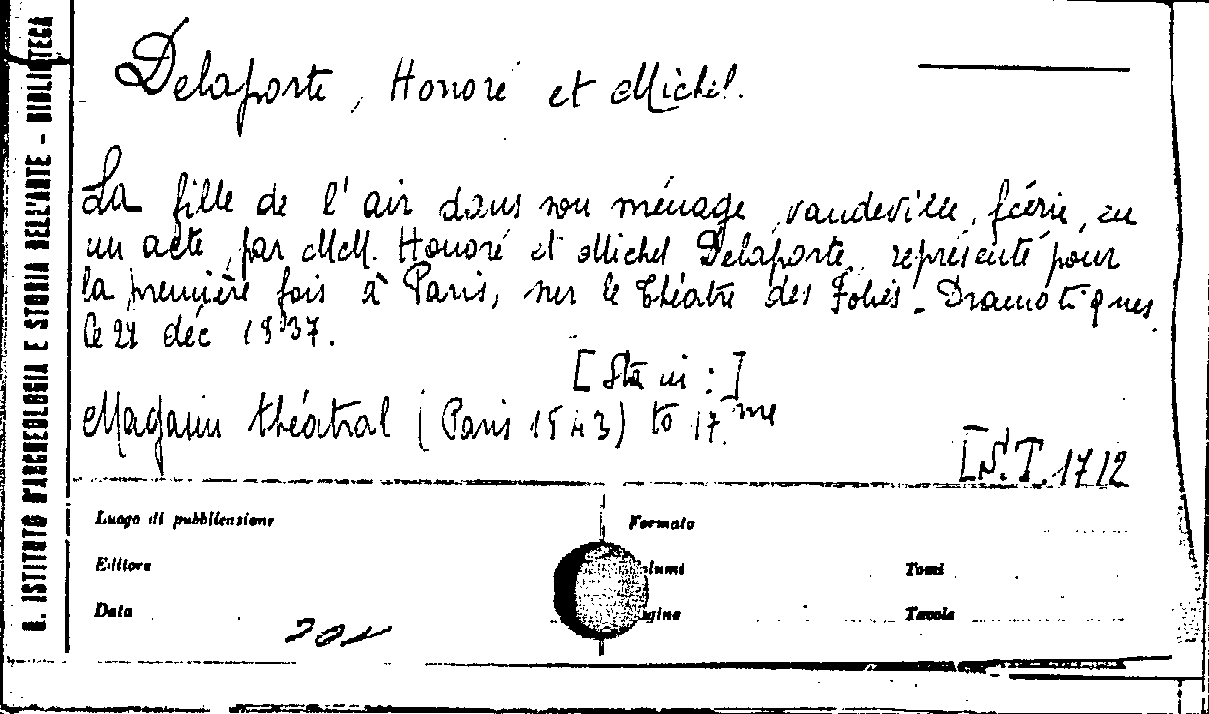 R. ISTITUTO D'ARCHEOLOGIA E STORIA DELL'ARTE - BIBLIOTECA
Delaporte, Honoré et Michel.
La fille de l'air dans son ménage, vaudeville, féerie, en
un acte, par MM. Honoré et Michel Delaporte, représenté pour
la première fois à Paris, sur le théatre des Folies-Dramatiques,
le 27 déc 1837.
[Sta in :]
Magasin théatral (Paris 1843) to 17.me
[N.T. 1712
Luogo di pubblicazione
Formato
Editore
Volumi
Tomi
Data
Pagine
Tavole